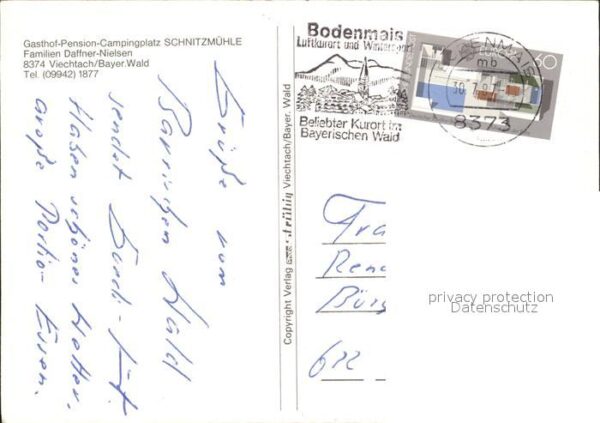 Gasthof-Pension-Campingplatz SCHNITZMÜHLE
Familien Daffner-Nielsen
8374 Viechtach/Bayer.Wald
Tel. (09942) 1877
Grüße vom
Bayrischen Wald
sendet
Haben schönes Wetter.
große Portion Essen.
Copyright Verlag Viechtach/Bayer. Wald
Bodenmais
Luftkurort und Wintersport
Beliebter Kurort im
Bayerischen Wald
BODENMAIS
mb
8373
60
Fra
Rena
Bürg
622
privacy protection
Datenschutz